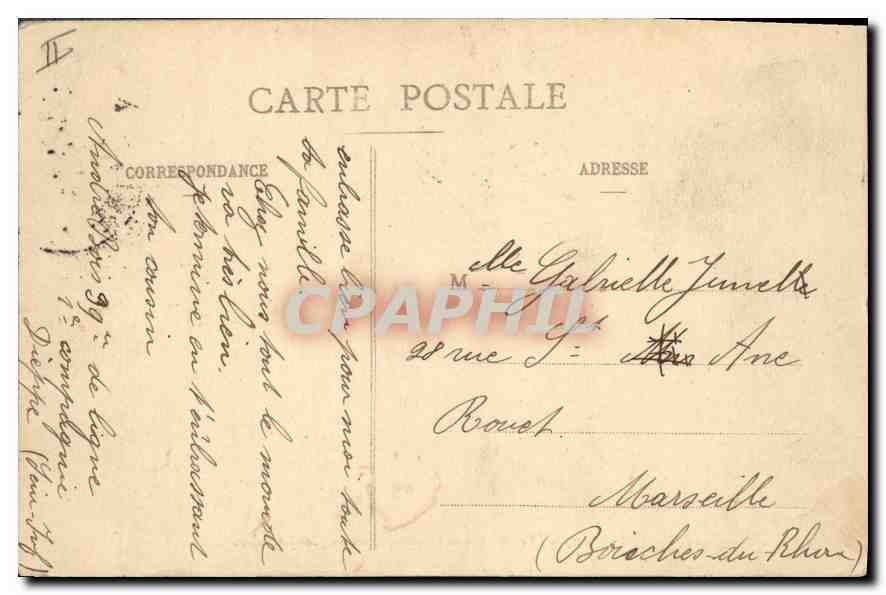 II
CARTE POSTALE
CORRESPONDANCE
ADRESSE
enbrasse bien pour moi toute
ta famille
Chez nous tout le monde
va très bien.
Je termine en t'enbrassant
ton cousin
André 39me de ligne
1re compagnie
Dieppe (Sein-Inf)
Mlle Gabrielle Junelle
28 rue St Anc
Rouet
Marseille
(Bouches-du-Rhon)
CPAPHIL